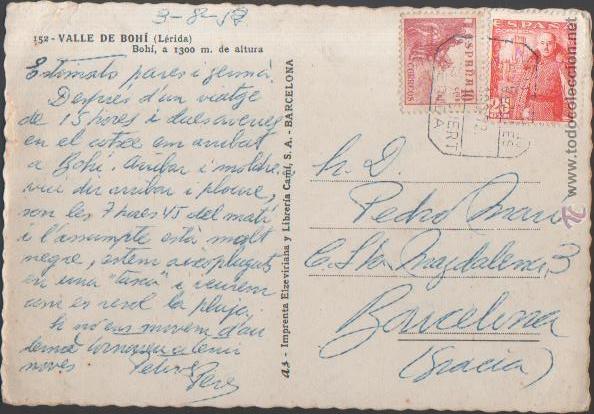 3-8-52
152 - VALLE DE BOHÍ (Lérida)
Bohí, a 1300 m. de altura
Estimats pares i germà.
Després d'un viatge
de 15 hores i dues averies
en el cotxe em arribat
a Bohí. Arribar i
vui dir arribar i ploure,
son les 7 hores 45 del matí
i l'assumpte està molt
negre, estem aixoplugats
en una "tasca" i veurem
com es resol la pluja.
Si no ens movem d'au
demà tornareu a tenir
noves
Pere
as - Imprenta Elzeviriana y Librería Camí, S. A. - BARCELONA
ESPAÑA
CORREOS
10
ESPAÑA
25
Sr. D.
Pedro
C. Sta. Magdalena, 3
Barcelona
(Gracia)
www.todocoleccion.net
tc